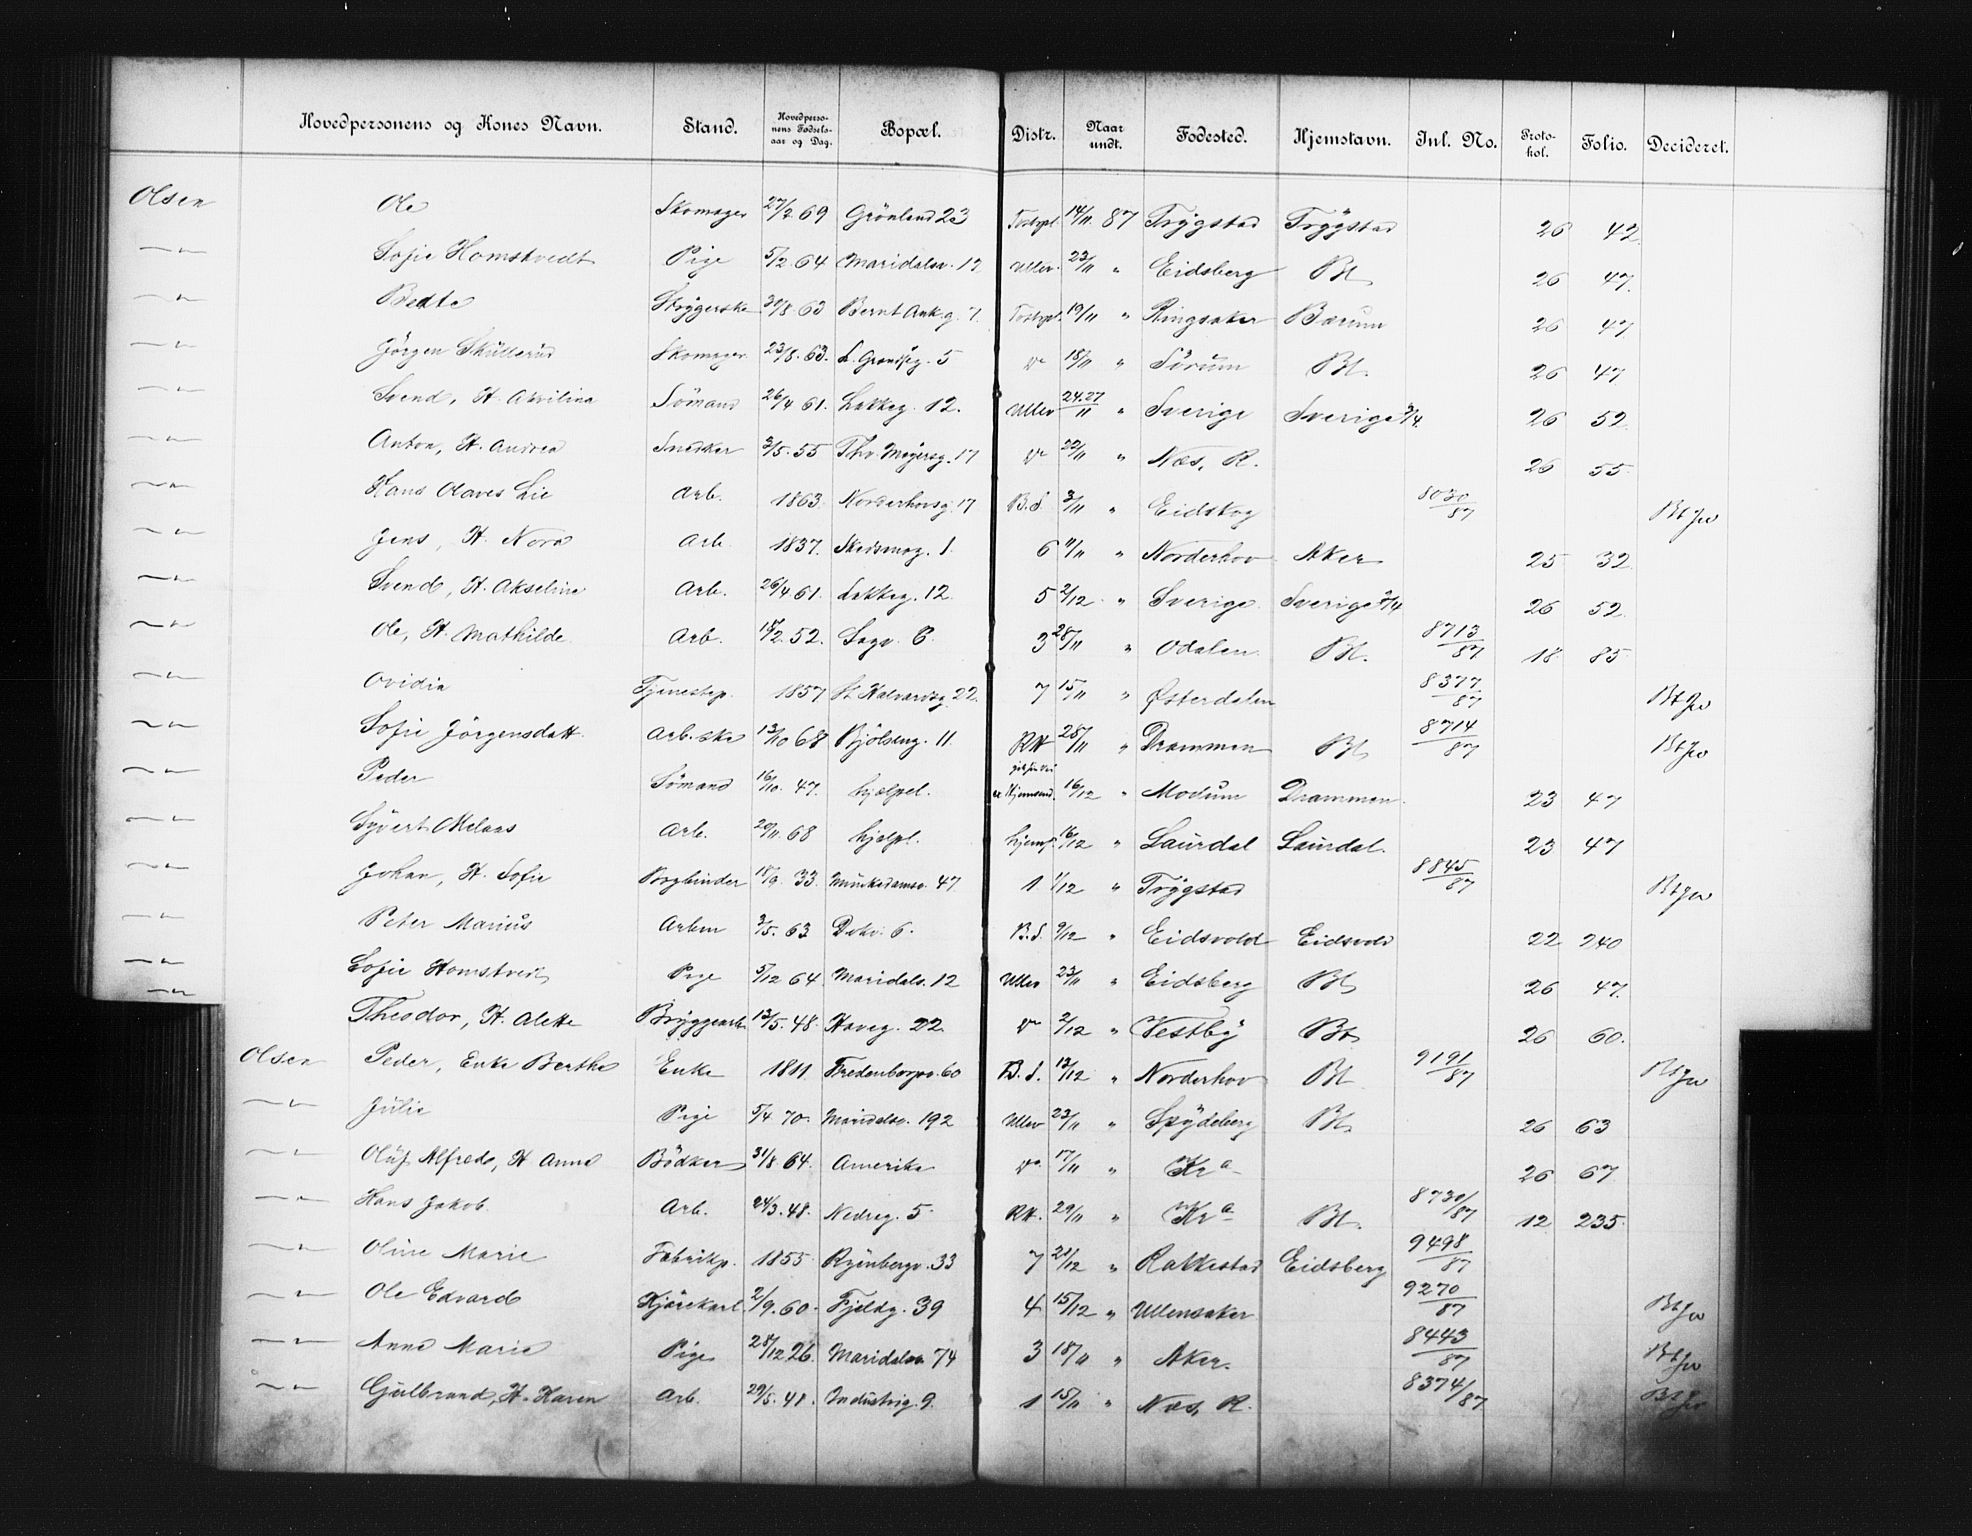 Hovedpersonens og Kones Navn. Stand. Hovedpersonens Fødselsaar og Dag. Bopæl. Distr. Naar undt. Fødested. Hjemstavn. Inl. No. Protokol. Folio. Decideret.
Olsen Ole Skomager 27/2 69 Grönland 23 14/11 87 Trygstad Trygstad 26 42
—„— Sofie Homstvedt Pige 5/2 64 Maridalsv. 12 Ullev. 23/11 „ Eidsberg Bt. 26 47.
—„— Beate Strygerske 63 Bernt Ank.g. 7. 19/11 „ Ringsaker Bærum 26 47
—„— Jörgen Skullerud Skomager 23/8. 63. L. Grændseg. 5 do 18/11 „ Sörum Bt. 26 47
—„— Svend, H. Akvilina Sömand 26/4 61. Lakkeg. 12. Ullev 24.27/11 „ Sverige Sverige 3/4. 26 52
—„— Anton, H. Andrea Snedker 3/5. 55 Thv. Meyersg. 17 do 22/11 „ Næs, R. 26 55
—„— Hans Olaves Lie Arb. 1863. Norderhovsg. 17 B.S. 3/11 „ Eidskog 8030/87 Bt Jw
—„— Jens, H. Nora Arb. 1837. Skedsmog. 1. 6 11/11 „ Norderhov Aker 25 32
—„— Svend, H. Akseline Arb. 26/4 61. Lakkeg. 12. 5 2/12 „ Sverige Sverige 3/4 26 52
—„— Ole, H. Mathilde Arb. 52. Sagv. 6. 3 28/11 „ Odalen Bt. 8713/87 18 85
—„— Ovidia Tjenestep. 1857 St. Halvardsg. 22. 7 15/11 „ Østerdalen 8377/87 Bt Jw
—„— Sofie Jörgensdatt. Arb.ske 13/10 68 Bjölseng. 11. RH 25/11 „ Drammen Bt. 8714/87 Bt Jw
—„— Peder Sömand 16/10. 47. hjælpel. 16/12 „ Modum Drammen 23 47
—„— Syvert Arb. 20/11. 68 hjælpl. hjemf. 16/12 „ Laurdal Laurdal. 23 47
—„— Johan, H. Sofie Bogbinder 18/9. 33. Munkedamsv. 47. 1 1/12 „ Trygstad 8845/87 Bt Jw
—„— Peter Marius Arbm 3/5. 63 Dokv. 6. B.S. 9/12 „ Eidsvold Eidsvold 22 240
—„— Sofie Homstvedt Pige 5/12 64 Maridalsv. 12 Ullev 23/11 „ Eidsberg Bt. 26 47.
—„— Theodor, H. Alette Bryggearb. 13/5. 48. Haveg. 22 do 2/12 „ Vestby Bt. 26 60.
Olsen Peder, Enke Berthe Enke 1811. Fredenborgv. 60 B.S. 13/12 „ Norderhov Bt 9191/87 Bt Jw
—„— Julie Pige 5/4 70. Maridalsv. 192 Ullev 23/11 „ Spydeberg Bt. 26 63
—„— Oluf Alfred, H Anna Bödker 31/8. 64. Amerika do. 17/11 „ Kra 26 67.
—„— Hans Jakob. Arb. 24/3. 48. Nedreg. 5. RH. 29/11 „ Kra Bt. 8730/87 12 235.
—„— Oline Marie Fabrikp. 1855 Ryenbergv. 33 7 21/12 „ Rakkestad Eidsberg 9498/87
—„— Ole Edvard Kjörekarl. 2/9. 60. Fjeldg. 39 4 15/12 „ Ullensaker 9270/87 Bt Jw
—„— Anne Marie Pige 28/12 26. Maridalsv. 74 3 18/11 „ Aker. 8443/87 Bt Jw
—„— Gulbrand, H. Karen Arb. 29/5. 41. Industrig. 9. 1 15/11 „ Næs, R. 8374/87 Bt Jw